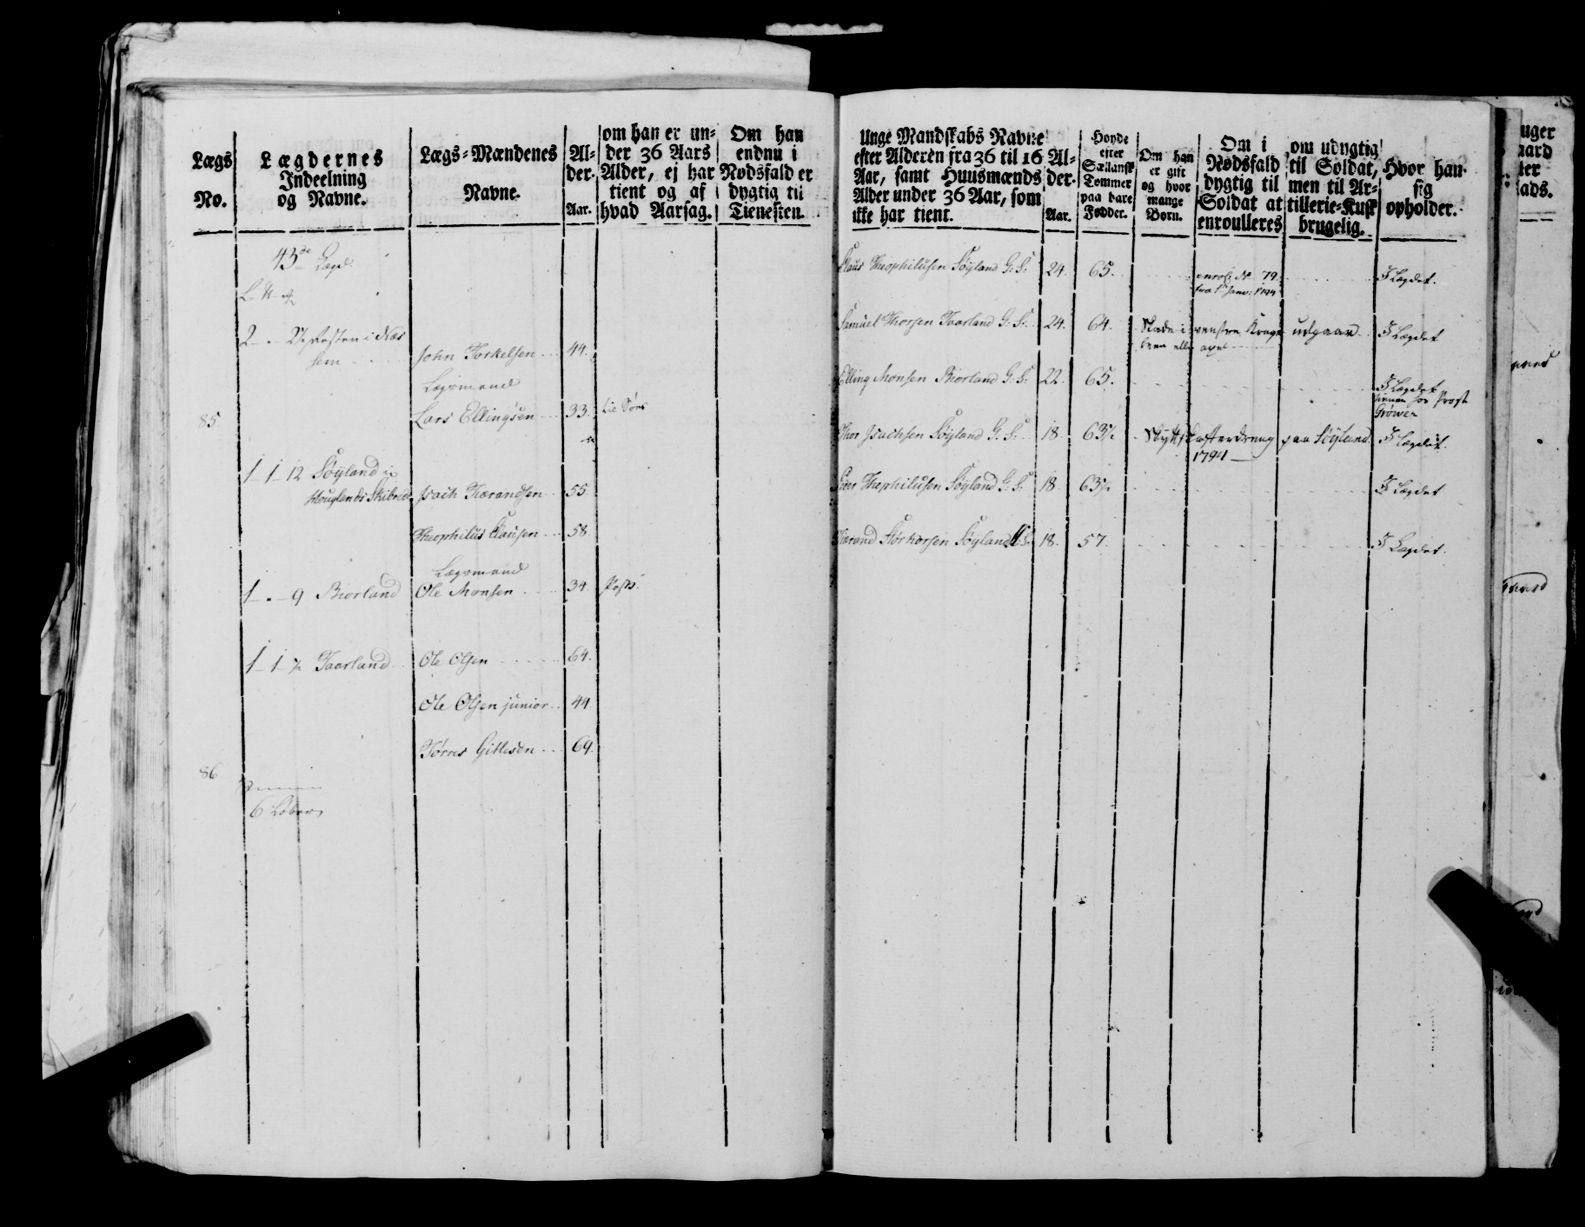 Lægs
No.
Lægdernes
Indeelning
og Navne.
Lægs-Mændenes
Navne.
Al-
der.
Aar.
om han er un-
der 36 Aars
Alder, ej har
tient og af
hvad Aarsag.
Om han
endnu i
Nødsfald er
dygtig til
Tienesten.
43de Lægd
L. U.
2 - - Præsten i Næs
hem
John Torkelsen 44.
Lægsmand
85
Lars Ellingsen 33.
1 1 12 Søyland
Houglands Skibrede Isach Tiærandsen 55
Theophilus Clausen 58.
Lægsmand
1 - - 9 Biorland Ole Monsen 34
1 1 ½ Taarland Ole Olsen 64.
Ole Olsen junior 44
Tørres Gitlesen 69.
86
6 Løber
Unge Mandskabs Navne
efter Alderen fra 36 til 16
Aar, samt Huusmænds
Alder under 36 Aar, som
ikke har tient.
Al-
der.
Aar.
Hoyde
efter
Sællansk
Tommer
paa bare
Fødder.
Om han
er gift
og hvor
mange
Born.
Om i
Nødsfald
dygtig til
Soldat at
enroulleres
om udygtig
til Soldat,
men til Ar-
tillerie-Kusk
brugelig.
Hvor han
sig
opholder.
Claus Theophilusen Søyland G. S. 24. 65. enrol: No 79 I Lægdet.
fra 1 Janv: 1794
Samuel Thorsen Taarland G. S. 24. 64. Skade i venstre udgaaer I Lægdet
been eller
Elling Monsen Biorland G. S. 22. 65. I Lægdet
tiener hos Provst
Grøwer
Thor Isachsen Søyland G. S. 18. 63½ Skydskafferdreng paa Søyland I Lægdet.
1794
Peder Theophilusen Søyland G. S. 18. 63½ I Lægdet
Tiærand Storkorsen Søyland 18. 57. I Lægdet.